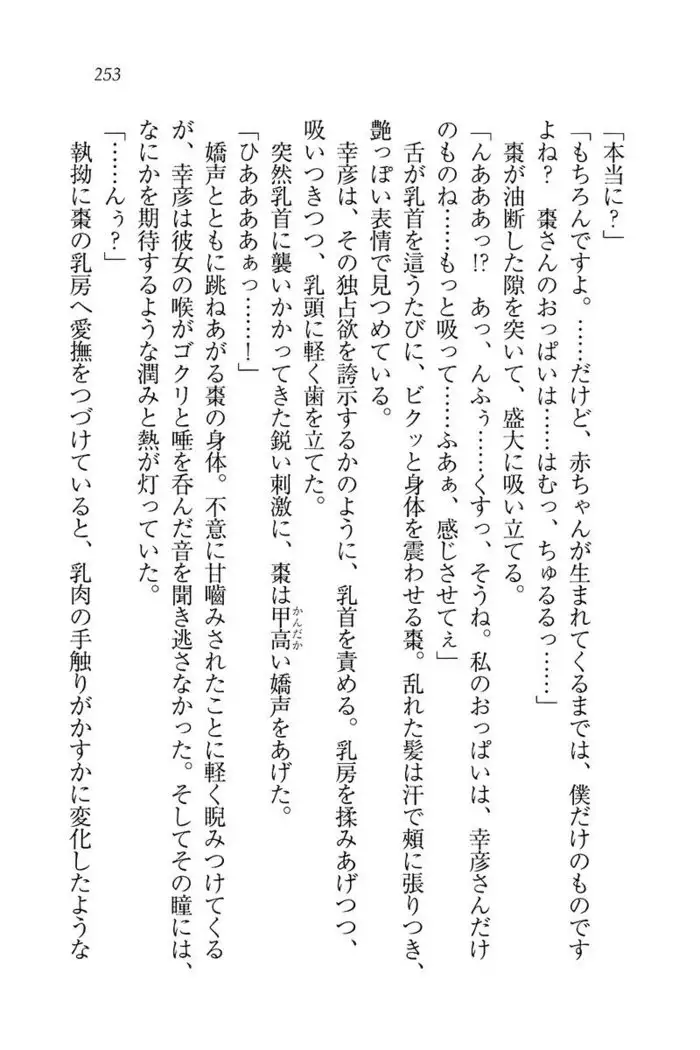 253
「本当に?」
「もちろんですよ。……だけど、赤ちゃんが生まれてくるまでは、僕だけのものです
よね? 棗さんのおっぱいは……はむっ、ちゅるるっ……」
棗が油断した隙を突いて、盛大に吸い立てる。
「んあああっ!? あっ、んふぅ……くすっ、そうね。私のおっぱいは、幸彦さんだけ
のものね……もっと吸って……ふあぁ、感じさせてぇ」
舌が乳首を這うたびに、ビクッと身体を震わせる棗。乱れた髪は汗で頰に張りつき、
艶っぽい表情で見つめている。
幸彦は、その独占欲を誇示するかのように、乳首を責める。乳房を揉みあげつつ、
吸いつきつつ、乳頭に軽く歯を立てた。
突然乳首に襲いかかってきた鋭い刺激に、棗は甲高い嬌声をあげた。
かんだか
「ひああああぁっ……!」
嬌声とともに跳ねあがる棗の身体。不意に甘嚙みされたことに軽く睨みつけてくる
が、幸彦は彼女の喉がゴクリと唾を呑んだ音を聞き逃さなかった。そしてその瞳には、
なにかを期待するような潤みと熱が灯っていた。
「……んぅ?」
執拗に棗の乳房へ愛撫をつづけていると、乳肉の手触りがかすかに変化したような